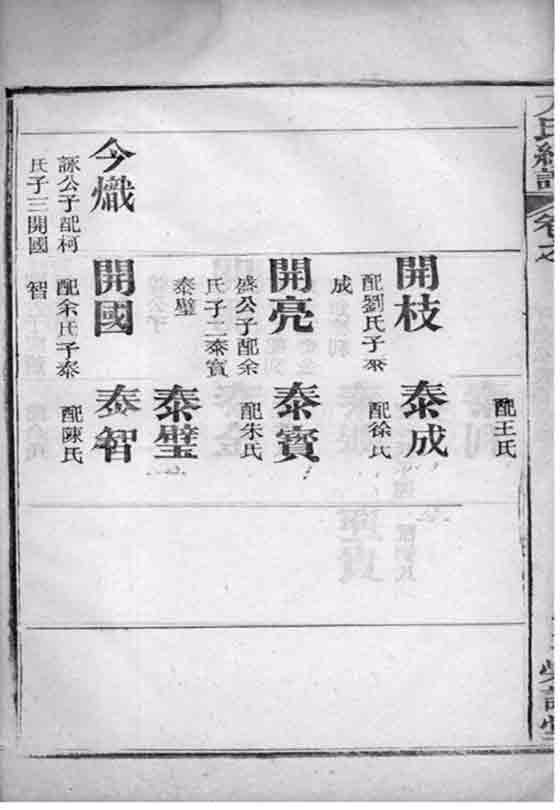 氏統譜
配王氏
開枝
配劉氏子泰
成
泰成
配徐氏
開亮
盛公子配余
氏子二泰寶
泰璧
泰寶
配朱氏
泰璧
今熾
詠公子配柯
氏子三開國
開國
配余氏子泰
智
泰智
配陳氏